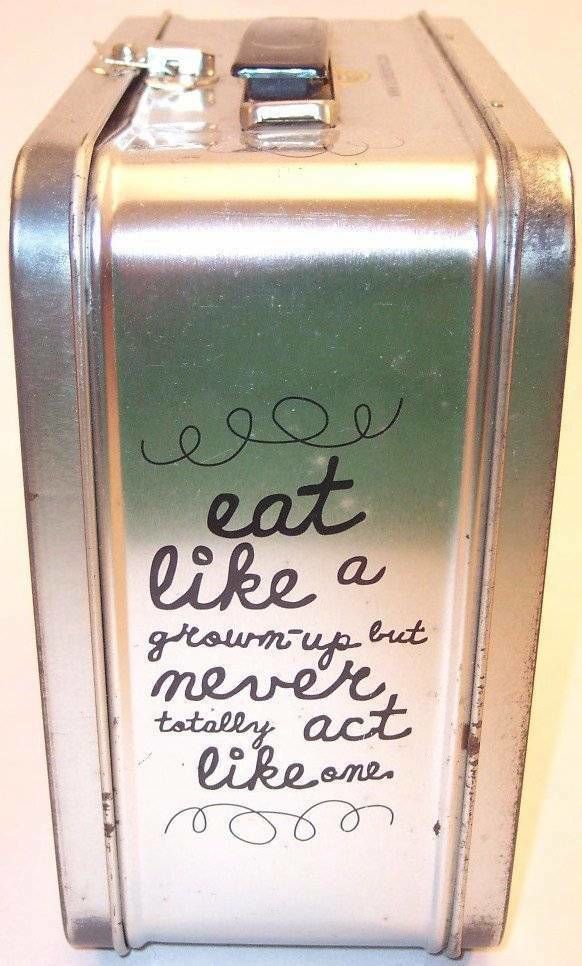 eat
like a
grown-up but
never
totally act
like one.